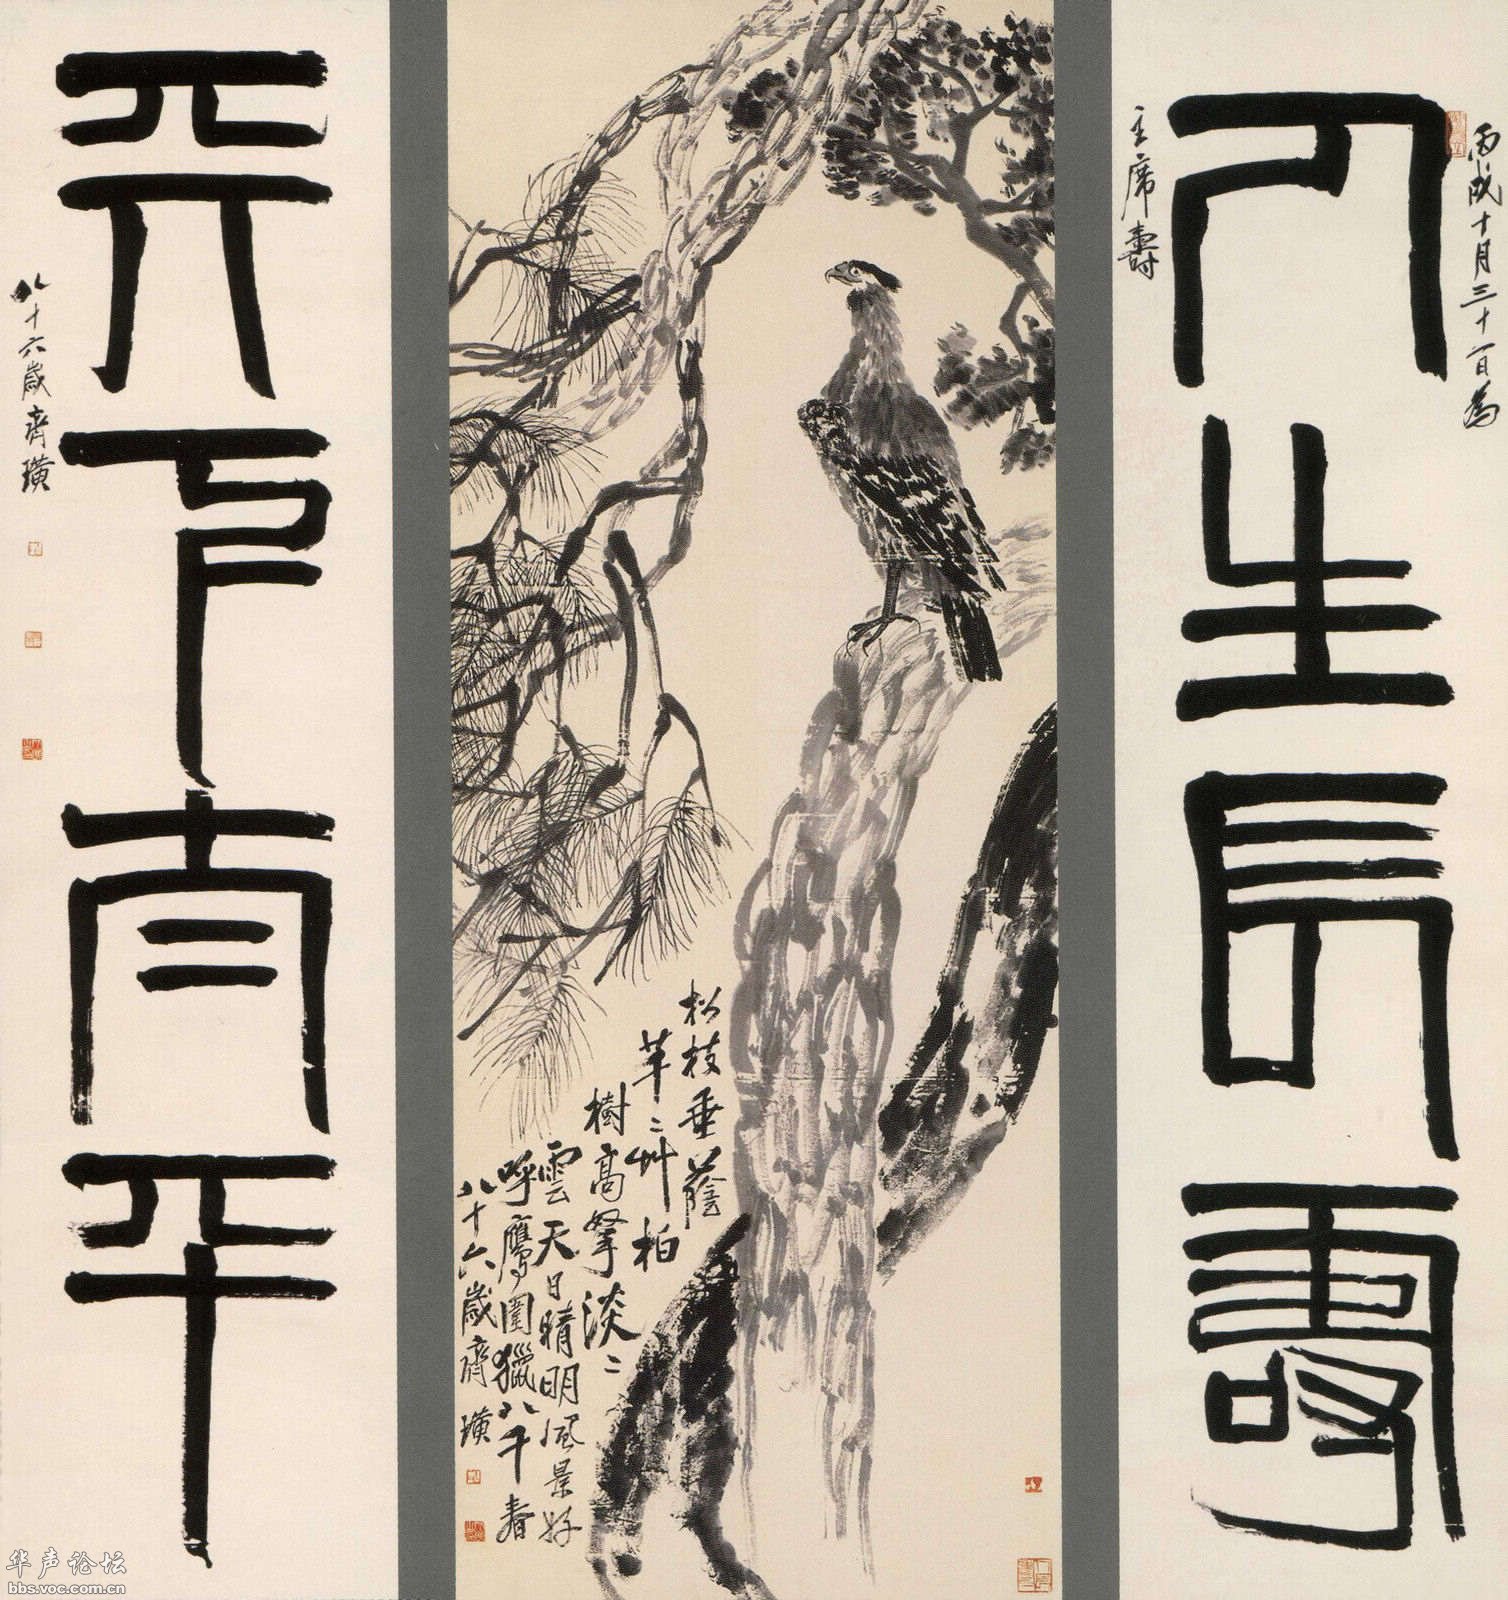 丙戌十月三十一日為
人生長壽
主席壽
松枝垂蔭
芊〻艸柏
樹高擎淡〻
雲天日晴明風景好
呼鷹圍獵八千春
八十六歲齊璜
天下太平
八十六歲齊璜
华声论坛
bbs.voc.com.cn